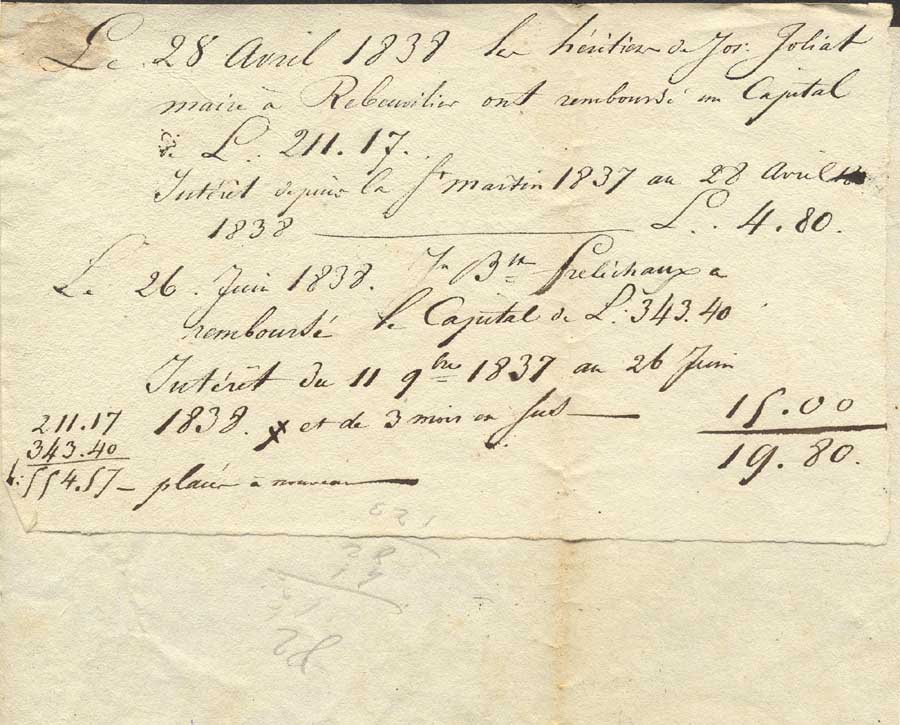 Le 28 Avril 1838 les héritiers de Jos: Joliat
maire à Rebeuvilier ont remboursé un Capital
de L. 211.17.
Intérêt depuis la St martin 1837 au 28 Avril
1838 L. 4.80.
Le 26. Juin 1838. Jn Bte frelèchaux a
remboursé le Capital de L. 343.40
Intérêt du 11 9bre 1837 au 26 Juin
1838. x et de 3 mois en sus 15.00
19.80.
211.17
343.40
L: 554.57 placée à nouveau